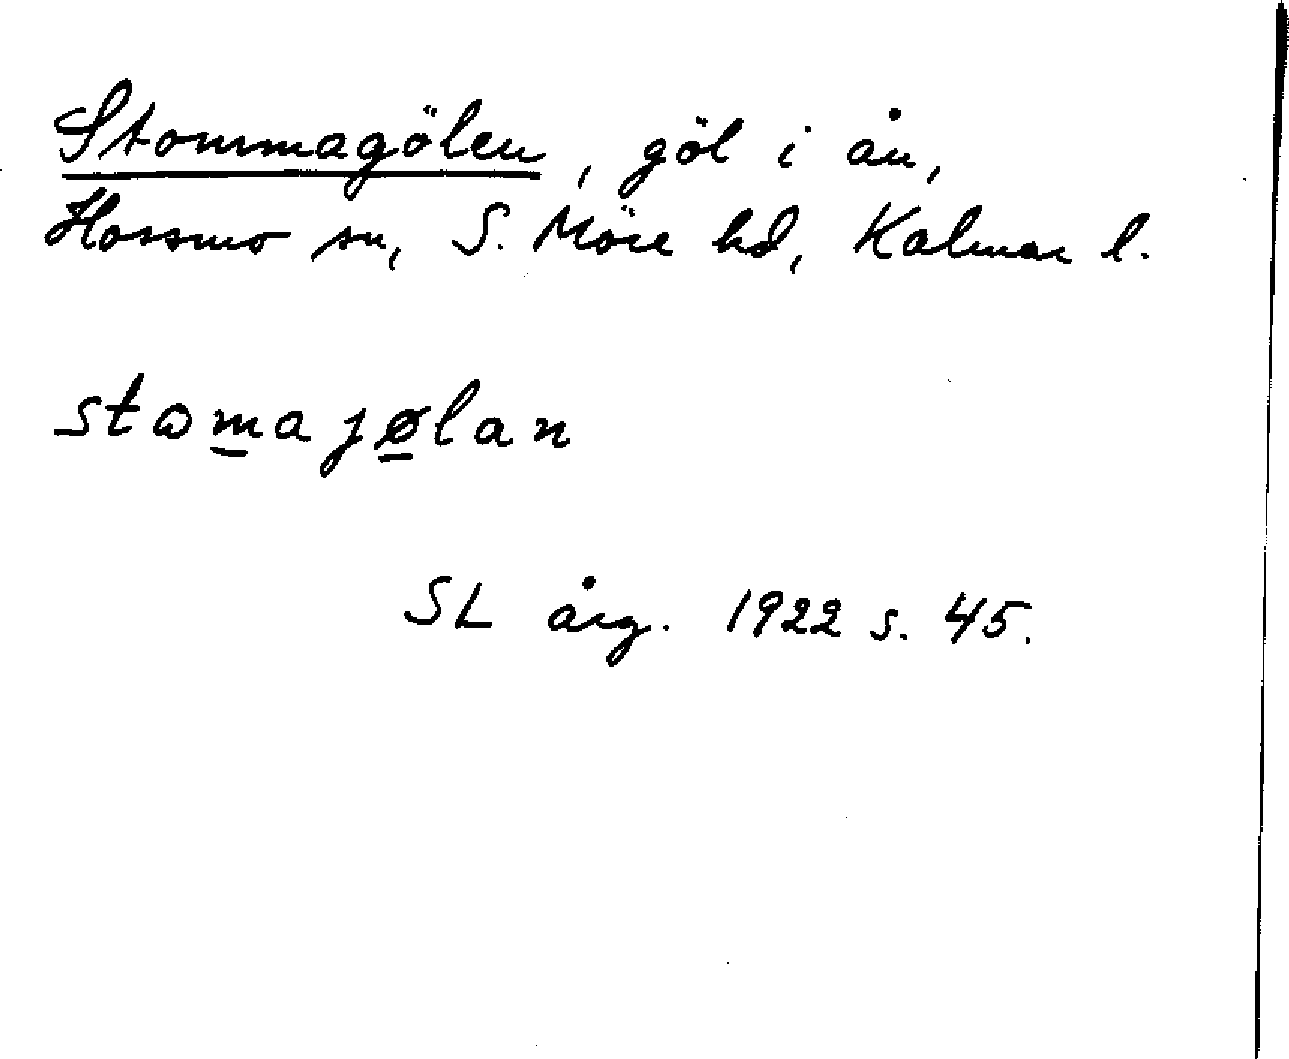 Stommagölen, göl i ån,
Hossmo sn, S. Möre hd, Kalmar l.
stωmajølan
SL årg. 1922 s. 45.